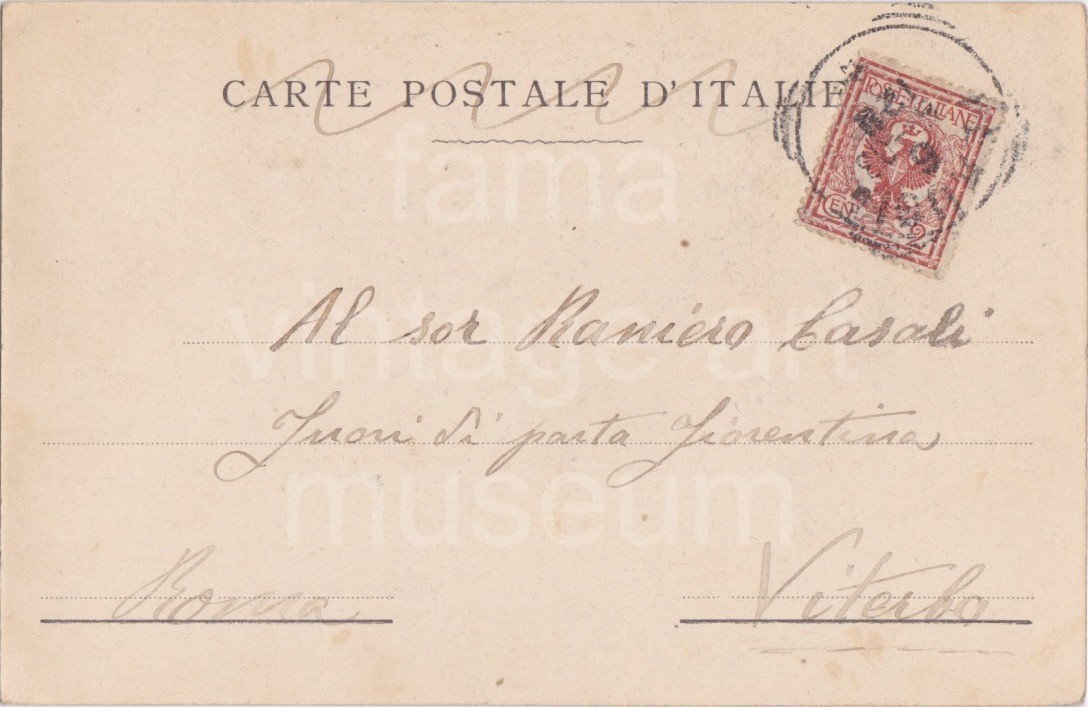 CARTE POSTALE D'ITALIE
POSTE ITALIANE
CENT. 2
fama
vintage art
museum
Al sor Raniero Casali
Fuori di porta Fiorentina
Roma
Viterbo